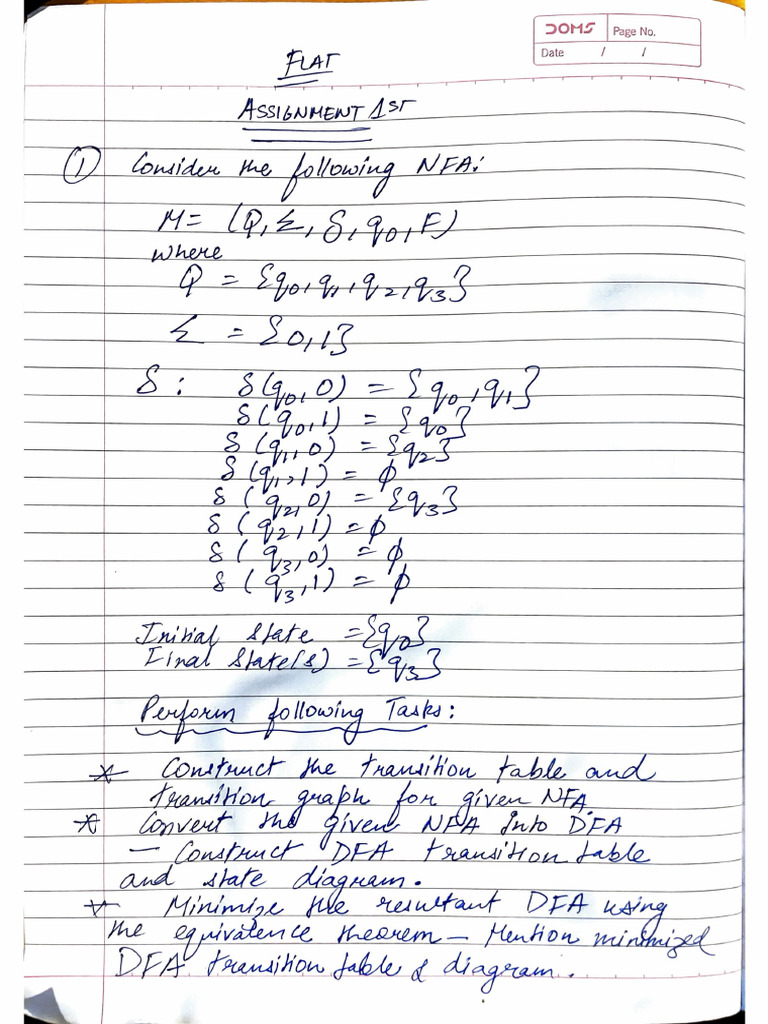 DOMS Page No.
Date / /
FLAT
ASSIGNMENT 1ST
① Consider the following NFA:
M = (Q, Σ, δ, q0, F)
where
Q = {q0, q1, q2, q3}
Σ = {0, 1}
δ : δ(q0, 0) = {q0, q1}
δ(q0, 1) = {q0}
δ(q1, 0) = {q2}
δ(q1, 1) = ϕ
δ(q2, 0) = {q3}
δ(q2, 1) = ϕ
δ(q3, 0) = ϕ
δ(q3, 1) = ϕ
Initial state = {q0}
Final state(s) = {q3}
Perform following Tasks:
* Construct the transition table and
transition graph for given NFA.
* Convert the given NFA into DFA
— Construct DFA transition table
and state diagram.
* Minimize the resultant DFA using
the equivalence theorem — Mention minimized
DFA transition table & diagram.